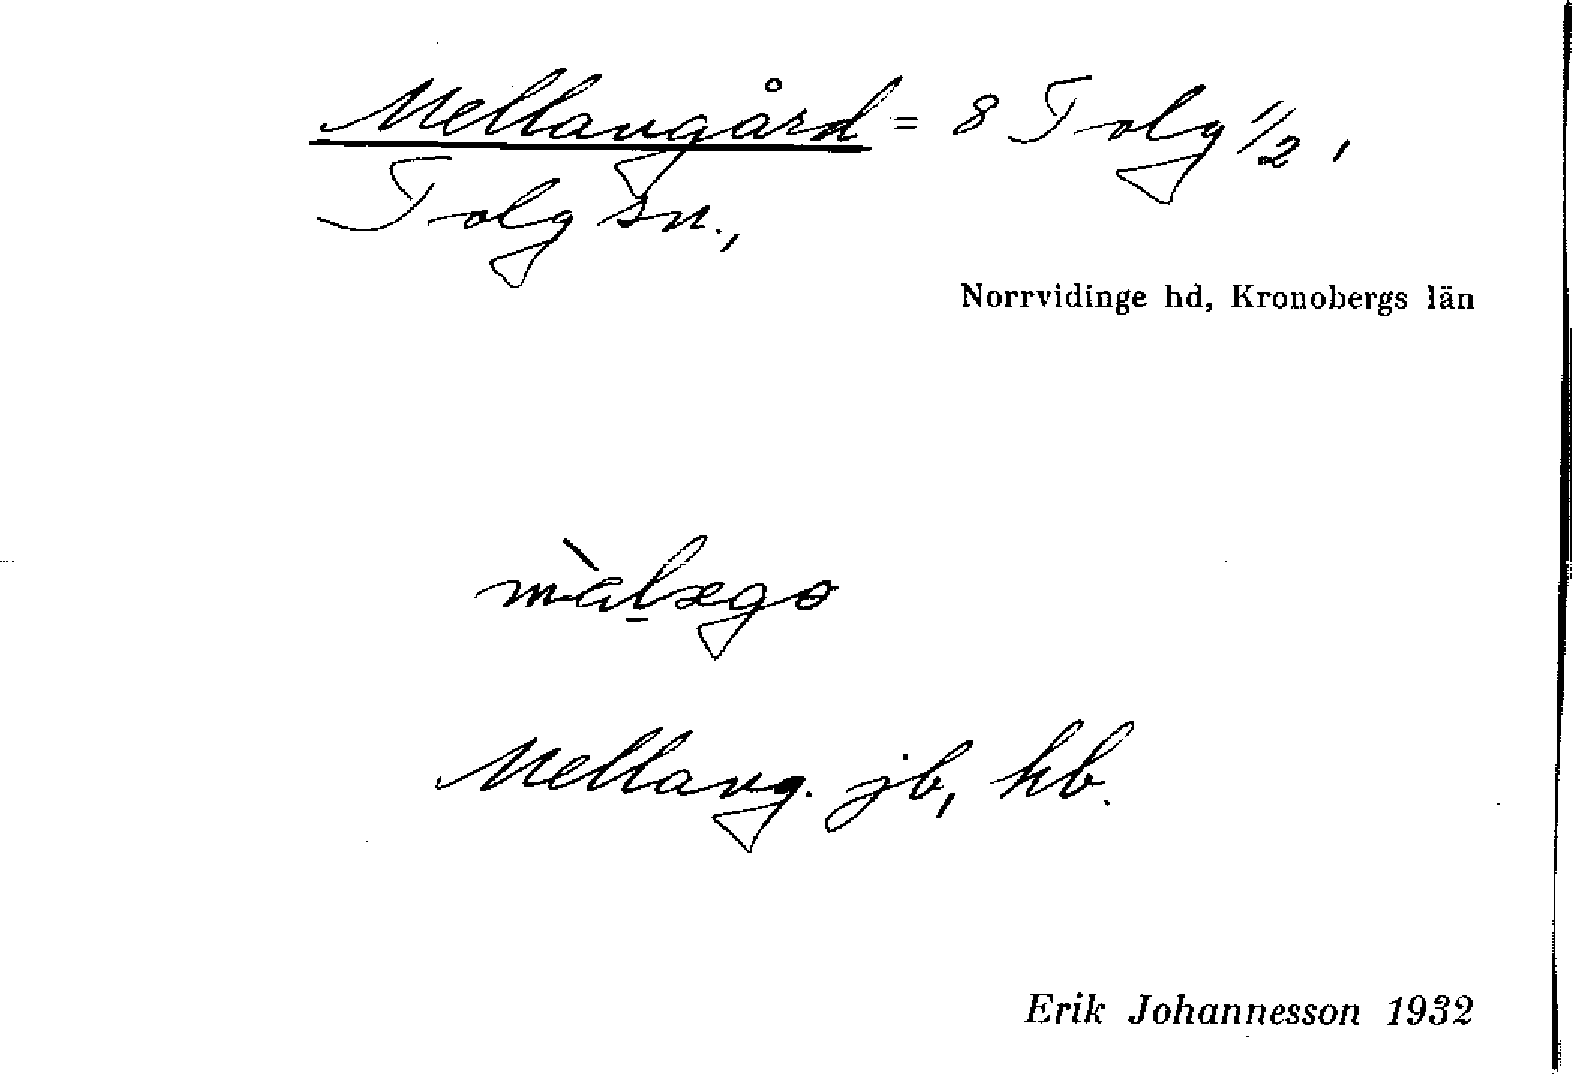 Mellangård = 8 Tolg 1/2,
Tolg sn.,
Norrvidinge hd, Kronobergs län
Mellang. jb, hb.
Erik Johannesson 1932